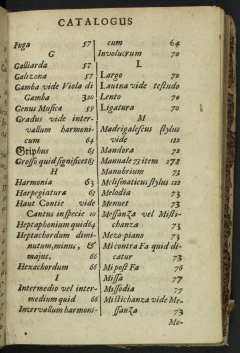 CATALOGUS
Fuga 57
G
Galliarda 57
Galizona 57
Gamba vide Viola di
Gamba 320
Genus Musica 59
Gradus vide inter-
vallum harmoni-
cum 64
Griphus 61
Grosso quid significet 61
H
Harmonia 63
Harpegiatura 61
Haut Contie vide
Cantus inspecie 10
Heptaphonium quid 64
Heptachordum dimi-
nutum, minus, &
majus. 66
Hexachordum 66
I
Intermedio vel inter-
medium quid 66
Intervallum harmoni-
cum 64
Involucrum 70
L
Largo 70
Lautna vide testudo
Lento 70
Ligatura 70
M
Madrigalescus stylus
vide 122
Mandora 72
Manuale 73 item 278
Manubrium 73
Melismaticus stylus 122
Melodia 73
Menuet 73
Messanza vel Misti-
chanza 73
Mezo-piano 73
Mi contra Fa quid di-
catur 73
Mi pose Fa 76
Missa 77
Missodia 77
Mistichanza vide Me-
ssanza 73
Mo-